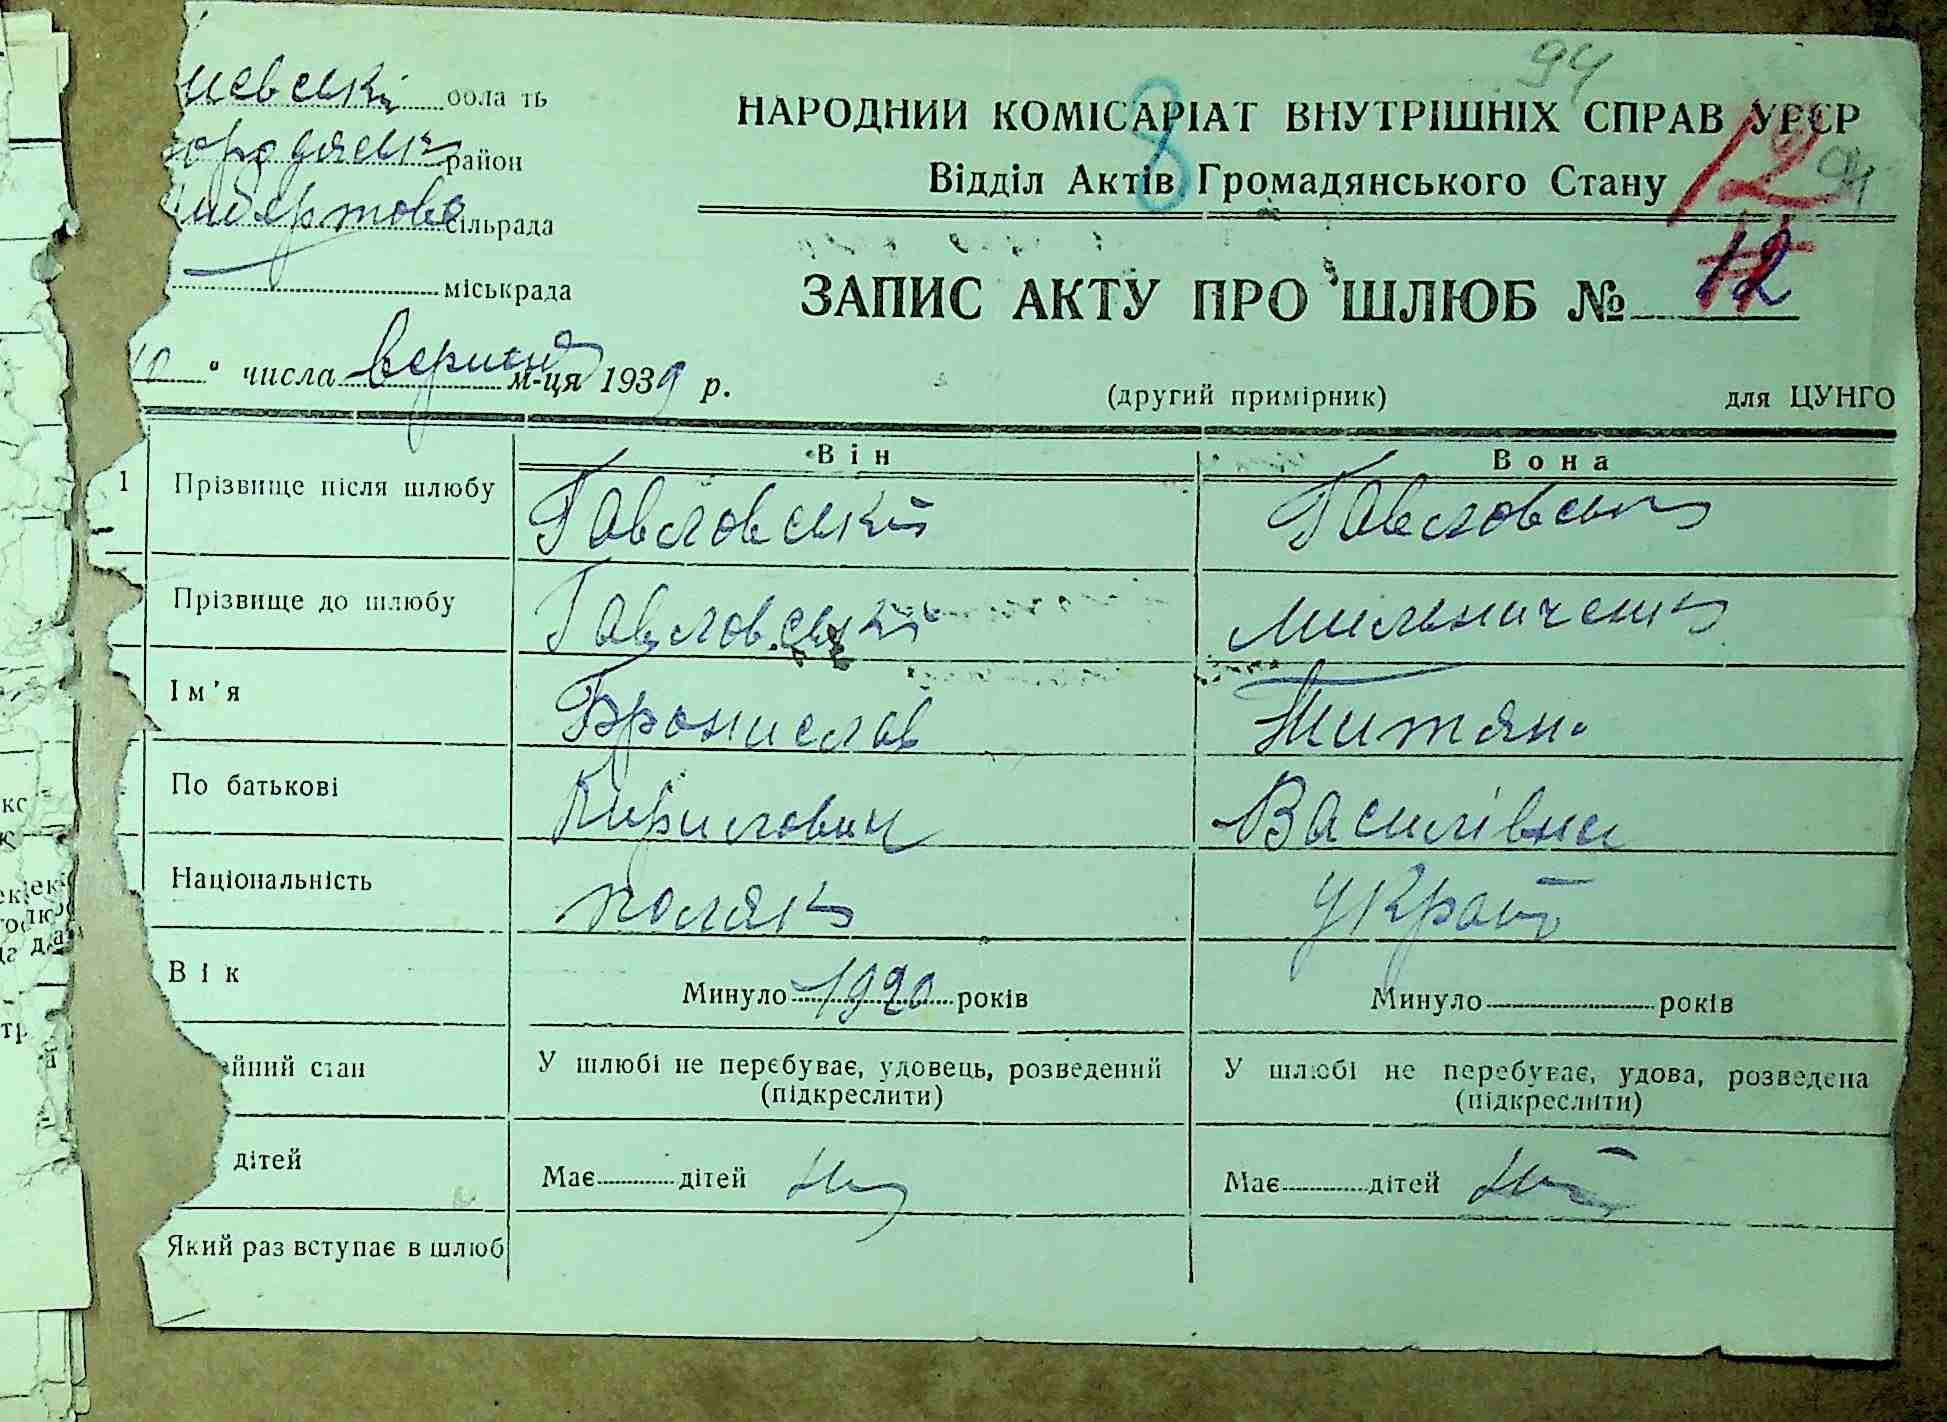 94
иєвські обла ть
НАРОДНИЙ КОМІСАРІАТ ВНУТРІШНІХ СПРАВ УРСР
8
12
94
ородянськ район
Відділ Актів Громадянського Стану
сільрада
міськрада
ЗАПИС АКТУ ПРО ШЛЮБ № 12
10 " числа вересня м-ця 1939 р.
(другий примірник) для ЦУНГО
Він Вона
1 Прізвище після шлюбу Павловський Павловськ
Прізвище до шлюбу Павловський Мельниченко
Ім'я Бронислав Титяна
По батькові Кирилович Василівна
Національність поляк Украї
Вік Минуло 1920 років Минуло років
ейний стан У шлюбі не перебуває, удовець, розведений У шлюбі не перебуває, удова, розведена
(підкреслити) (підкреслити)
дітей Має дітей Має дітей
Який раз вступає в шлюб